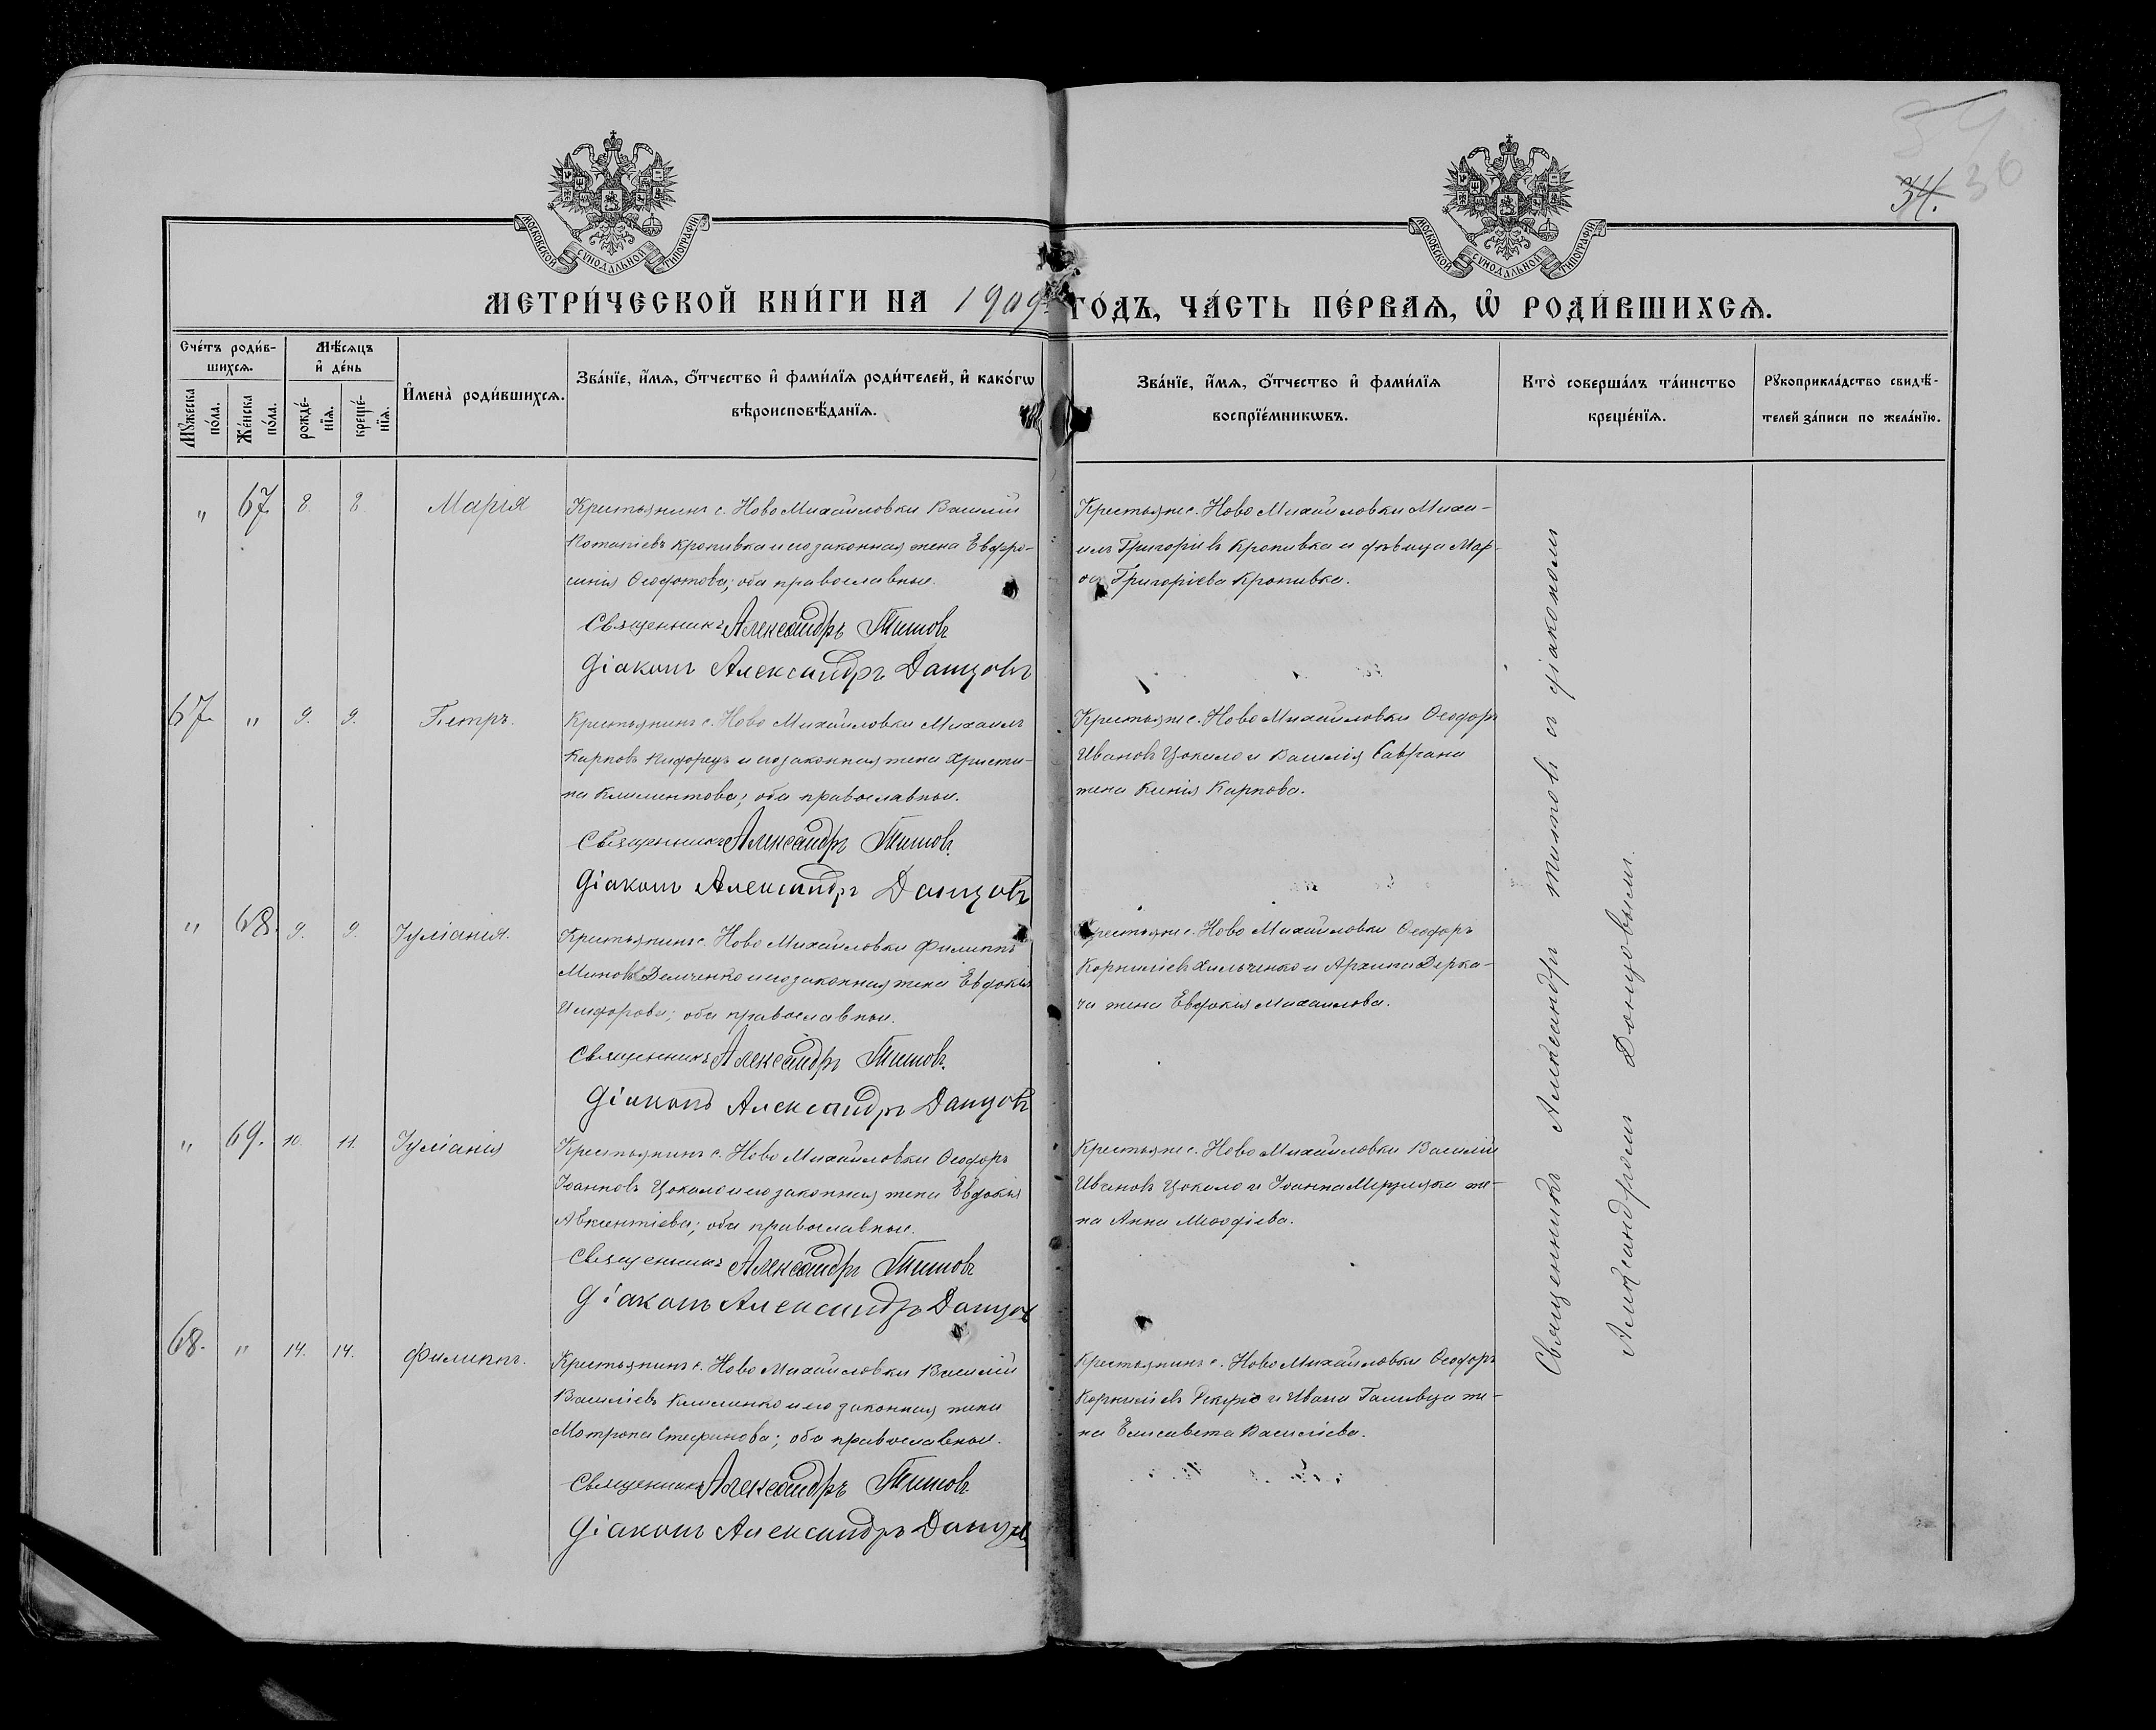 34. 36
МОСКОВСКОЙ СѴНОДАЛЬНОЙ ТИПОГРАФІИ
МОСКОВСКОЙ СѴНОДАЛЬНОЙ ТИПОГРАФІИ
МЕТРИ́ЧЕСКОЙ КНИ́ГИ НА 1909 ГО́ДЪ, ЧА́СТЬ ПЕ́РВАѦ, Ѽ РОДИ́ВШИХСѦ.
Сче́тъ роди́в-
шихсѧ.
Мꙋ́жеска по́ла.
Же́нска по́ла.
Мѣ́сѧцъ
и҆ де́нь
рожде́-нїѧ.
креще́-нїѧ.
И҆мена̀ роди́вшихсѧ.
Зва́нїе, и҆́мѧ, ѻ҆́тчество и҆ фами́лїѧ роди́телей, и҆ како́гѡ
вѣроисповѣ́данїѧ.
Зва́нїе, и҆́мѧ, ѻ҆́тчество и҆ фами́лїѧ
воспрїе́мникѡвъ.
Кто̀ соверша́лъ та́инство
креще́нїѧ.
Рꙋкоприкла́дство свидѣ́-
телей за́писи по жела́нїю.
" 67 8. 8. Марія
Крестьянинъ с. Ново Михайловки Василій
Потапіевъ Кропивка и его законная жена Евфро-
синія Ѳеодотова; оба православные.
Священникъ Александръ Титовъ
Діаконъ Александръ Данцовъ
Крестьяне с. Ново Михайловки Миха-
илъ Григоріевъ Кропивка и дѣвица Мар-
ѳа Григоріева Кропивка.
67. " 9. 9. Петръ.
Крестьянинъ с. Ново Михайловки Михаилъ
Карповъ и его законная жена Христи-
на Климентова; оба православные.
Священникъ Александръ Титовъ.
Діаконъ Александръ Данцовъ
Крестьяне с. Ново Михайловки Ѳеодоръ
Ивановъ Цокало и Василія Саврана
жена Ксенія Карпова.
" 68. 9. 9. Іуліанія.
Крестьянинъ с. Ново Михайловки Филиппъ
Миновъ Демченко и его законная жена Евдокія
Исидорова; оба православные.
Священникъ Александръ Титовъ.
Діаконъ Александръ Данцовъ
Крестьяне с. Ново Михайловки Ѳеодоръ
Корниліевъ Хильченко и Архипа Дерка-
ча жена Евдокія Михаилова.
" 69. 10. 11. Іуліанія
Крестьянинъ с. Ново Михайловки Ѳеодоръ
Іоанновъ Цокало и его законная жена Евдокія
Авксентіева; оба православные.
Священникъ Александръ Титовъ
Діаконъ Александръ Данцов
Крестьяне с. Ново Михайловки Василій
Ивановъ Цокало и Іоанна же-
на Анна Меѳодіева.
68. " 14. 14. Филиппъ.
Крестьянинъ с. Ново Михайловки Василій
Василіевъ Клименко и его законная жена
Матрона Стефанова; оба православные.
Священникъ Александръ Титовъ
Діаконъ Александръ Данцовъ
Крестьянинъ с. Ново Михайловки Ѳеодоръ
Корниліевъ и Ивана же-
на Елисавета Василіева.
Священникъ Александръ Титовъ и діакономъ
Александромъ Донцовымъ.